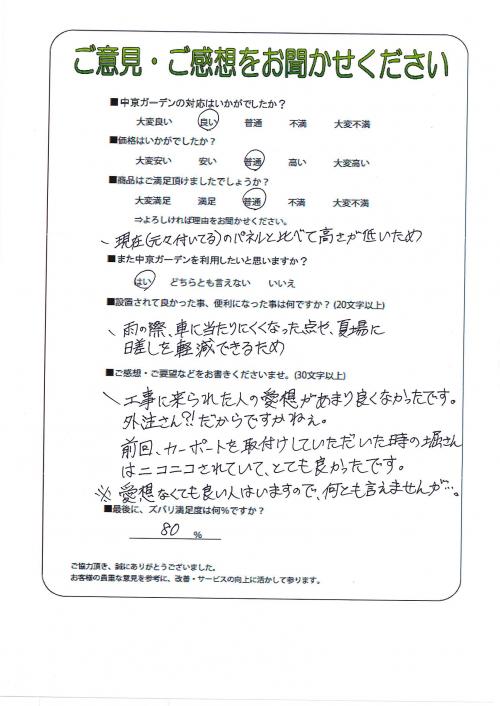 ご意見・ご感想をお聞かせください
■中京ガーデンの対応はいかがでしたか？
大変良い 良い 普通 不満 大変不満
■価格はいかがでしたか？
大変安い 安い 普通 高い 大変高い
■商品はご満足頂けましたでしょうか？
大変満足 満足 普通 不満 大変不満
⇒よろしければ理由をお聞かせください。
、現在(元々付いてる)のパネルと比べて高さが低いため
■また中京ガーデンを利用したいと思いますか？
はい どちらとも言えない いいえ
■設置されて良かった事、便利になった事は何ですか？(20文字以上)
、雨の際、車に当たりにくくなった点や、夏場に
日差しを軽減できるため
■ご感想・ご要望などをお書きくださいませ。(30文字以上)
、工事に来られた人の愛想があまり良くなかったです。
外注さん?!だからですかねぇ。
前回、カーポートを取付けしていただいた時の堀さん
はニコニコされていて、とても良かったです。
※愛想なくても良い人はいますので、何とも言えませんが…。
■最後に、ズバリ満足度は何％ですか？
80 %
ご協力頂き、誠にありがとうございました。
お客様の貴重な意見を参考に、改善・サービスの向上に活かして参ります。